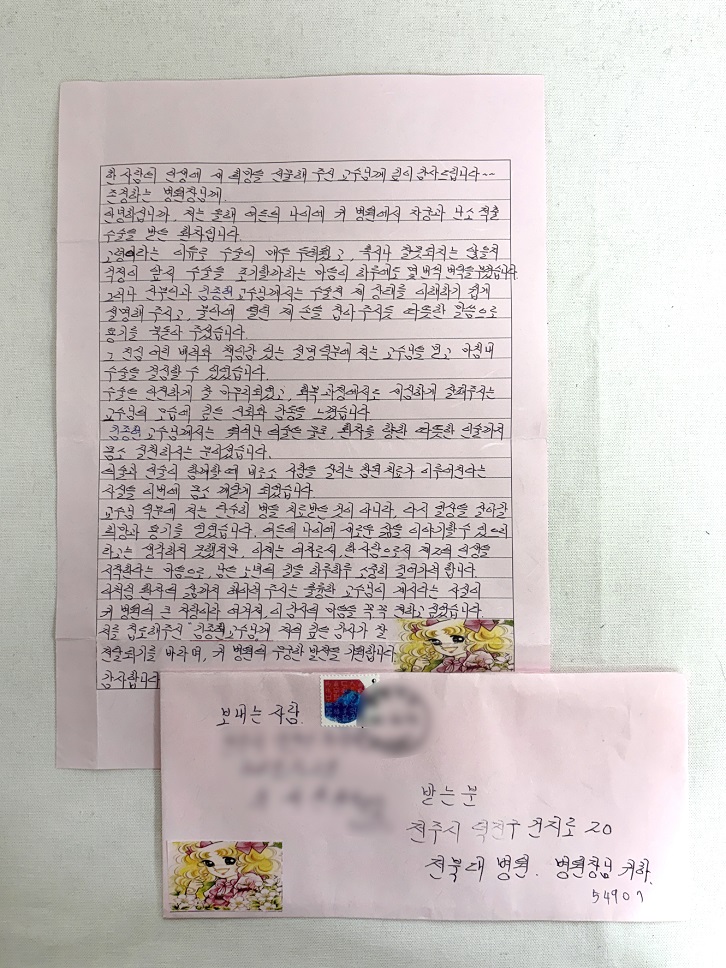 한 사람의 인생에 새 희망을 선물해 주신 교수님께 깊이 감사드립니다~~
존경하는 병원장님께.
안녕하십니까. 저는 올해 여든의 나이에 귀 병원에서 자궁과 난소 적출
수술을 받은 환자입니다.
고령이라는 이유로 수술이 매우 두려웠고, 혹시나 잘못되지는 않을지
걱정이 앞서 수술을 포기할까하는 마음이 하루에도 몇 번씩 반복되었습니다
그러나 산부인과 김종현 교수님께서는 수술전 제 상태를 이해하기 쉽게
설명해 주시고, 불안에 떨던 제 손을 잡아 주시듯 따뜻한 말씀으로
용기를 북돋아 주셨습니다.
그 진심 어린 배려와 책임감 있는 설명 덕분에 저는 교수님을 믿고 마침내
수술을 결심할 수 있었습니다.
수술은 안전하게 잘 마무리되었고, 회복 과정에서도 세심하게 살펴주시는
교수님의 모습에 깊은 신뢰와 감동을 느꼈습니다
교수님께서는 뛰어난 의술은 물론, 환자를 향한 따뜻한 인술까지
몸소 실천하시는 분이셨습니다.
의술과 인술이 함께할 때 비로소 사람을 살리는 참된 치료가 이루어진다는
사실을 이번에 몸소 깨닫게 되었습니다
교수님 덕분에 저는 단순히 병을 치료받은 것이 아니라, 다시 일상을 살아갈
희망과 용기를 얻었습니다. 여든의 나이에 새로운 삶을 이야기할 수 있으리
라고는 생각하지 못했지만, 이제는 여자로서, 한 사람으로서 제2의 인생을
시작한다는 마음으로, 남은 노년의 길을 하루하루 소중히 걸어가려 합니다.
이처럼 환자의 삶까지 헤아려 주시는 훌륭한 교수님이 계시다는 사실이
귀 병원의 큰 자랑이라 여겨져, 이 감사의 마음을 꼭 꼭 전하고 싶었습니다
저를 집도해주신 교수님께 저의 깊은 감사가 잘
전달되기를 바라며, 귀 병원의 무궁한 발전을 기원합니다
감사합니다
보내는 사람.
받는 분
전주시 덕진구 건지로 20
전북대 병원. 병원장님 귀하.
54907